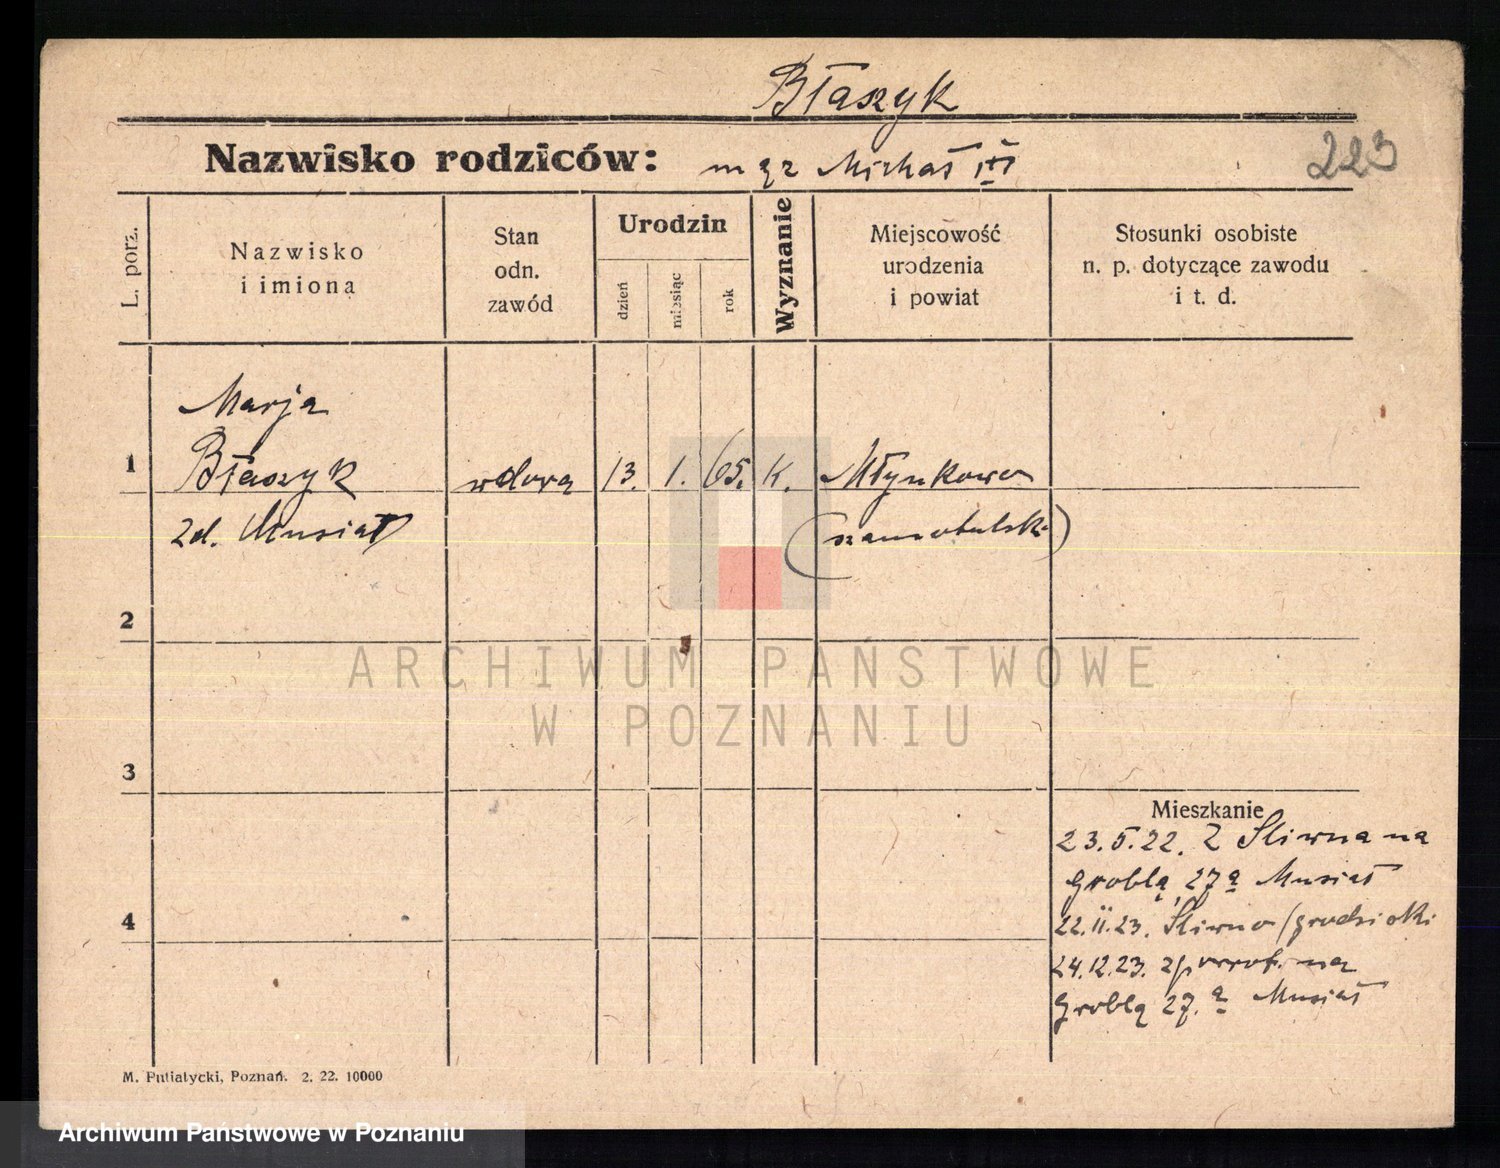 Błaszyk
Nazwisko rodziców: mąż Michał
223
L. porz.
Nazwisko
i imiona
Stan
odn.
zawód
Urodzin
dzień
miesiąc
rok
Wyznanie
Miejscowość
urodzenia
i powiat
Stosunki osobiste
n. p. dotyczące zawodu
i t. d.
Marja
1 Błaszyk wdowa 13. 1. 65. K. Młynkowo
zd. Musiał (szamotulski)
2
3
4
Mieszkanie
23.5.22. Z Śliwna na
Groblą 27a Musiał
22.II.23. Śliwno (grodziski
24.12.23. zpowrot. na
Groblą 27.a Musiał
M. Putiatycki, Poznań. 2. 22. 10000
ARCHIWUM PAŃSTWOWE
W POZNANIU
Archiwum Państwowe w Poznaniu